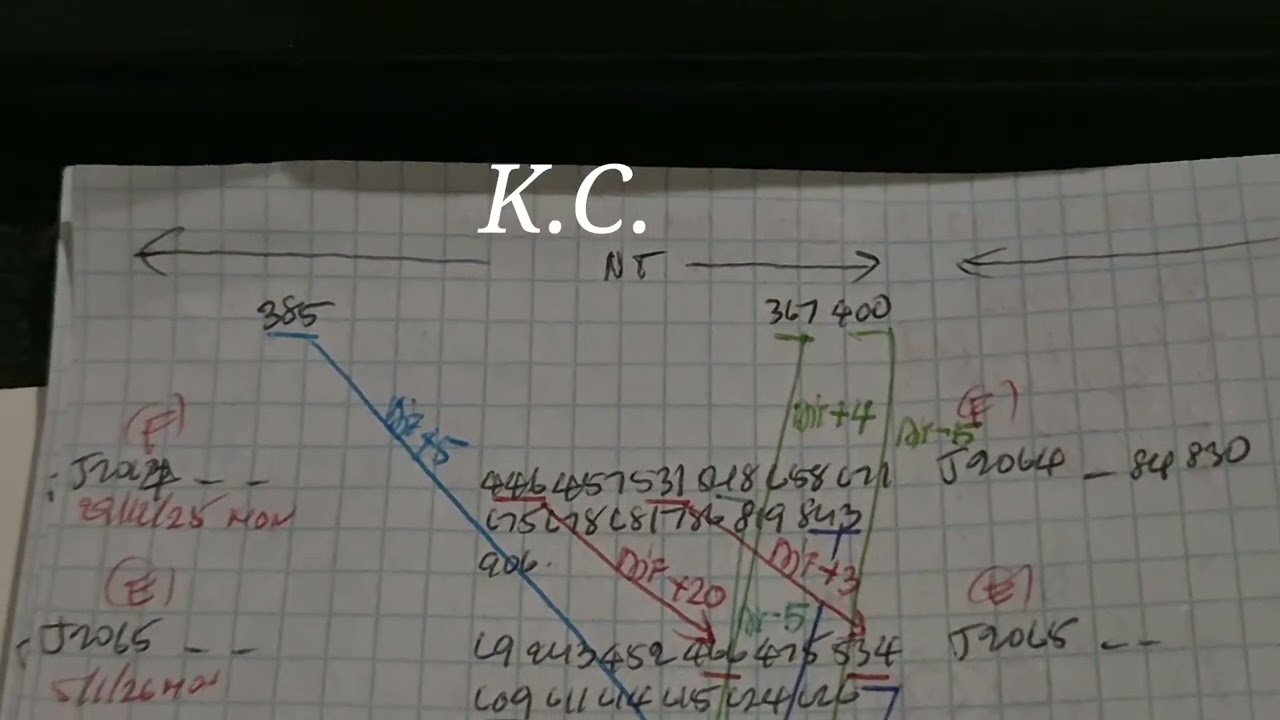 K.C.
NT
385 367 400
(F) Dir+5 Dir+4 Dir-5 (F)
J2064 - - 446 457 531 618 658 671 J2064 - 84 830
29/12/25 MON 675 678 681 786 819 843
906. Dir+20 Dir+3
(E) Dir-5 (E)
J2065 - - 69 243 452 466 475 534 J2065 - -
5/1/26 MON 609 611 614 615 624 626